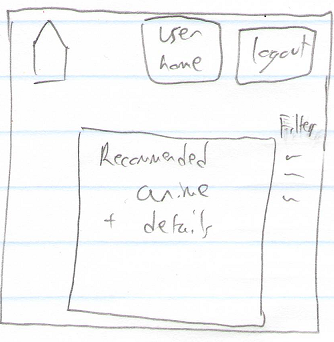 user
home
logout
Filter
Recommended
anime
+ details